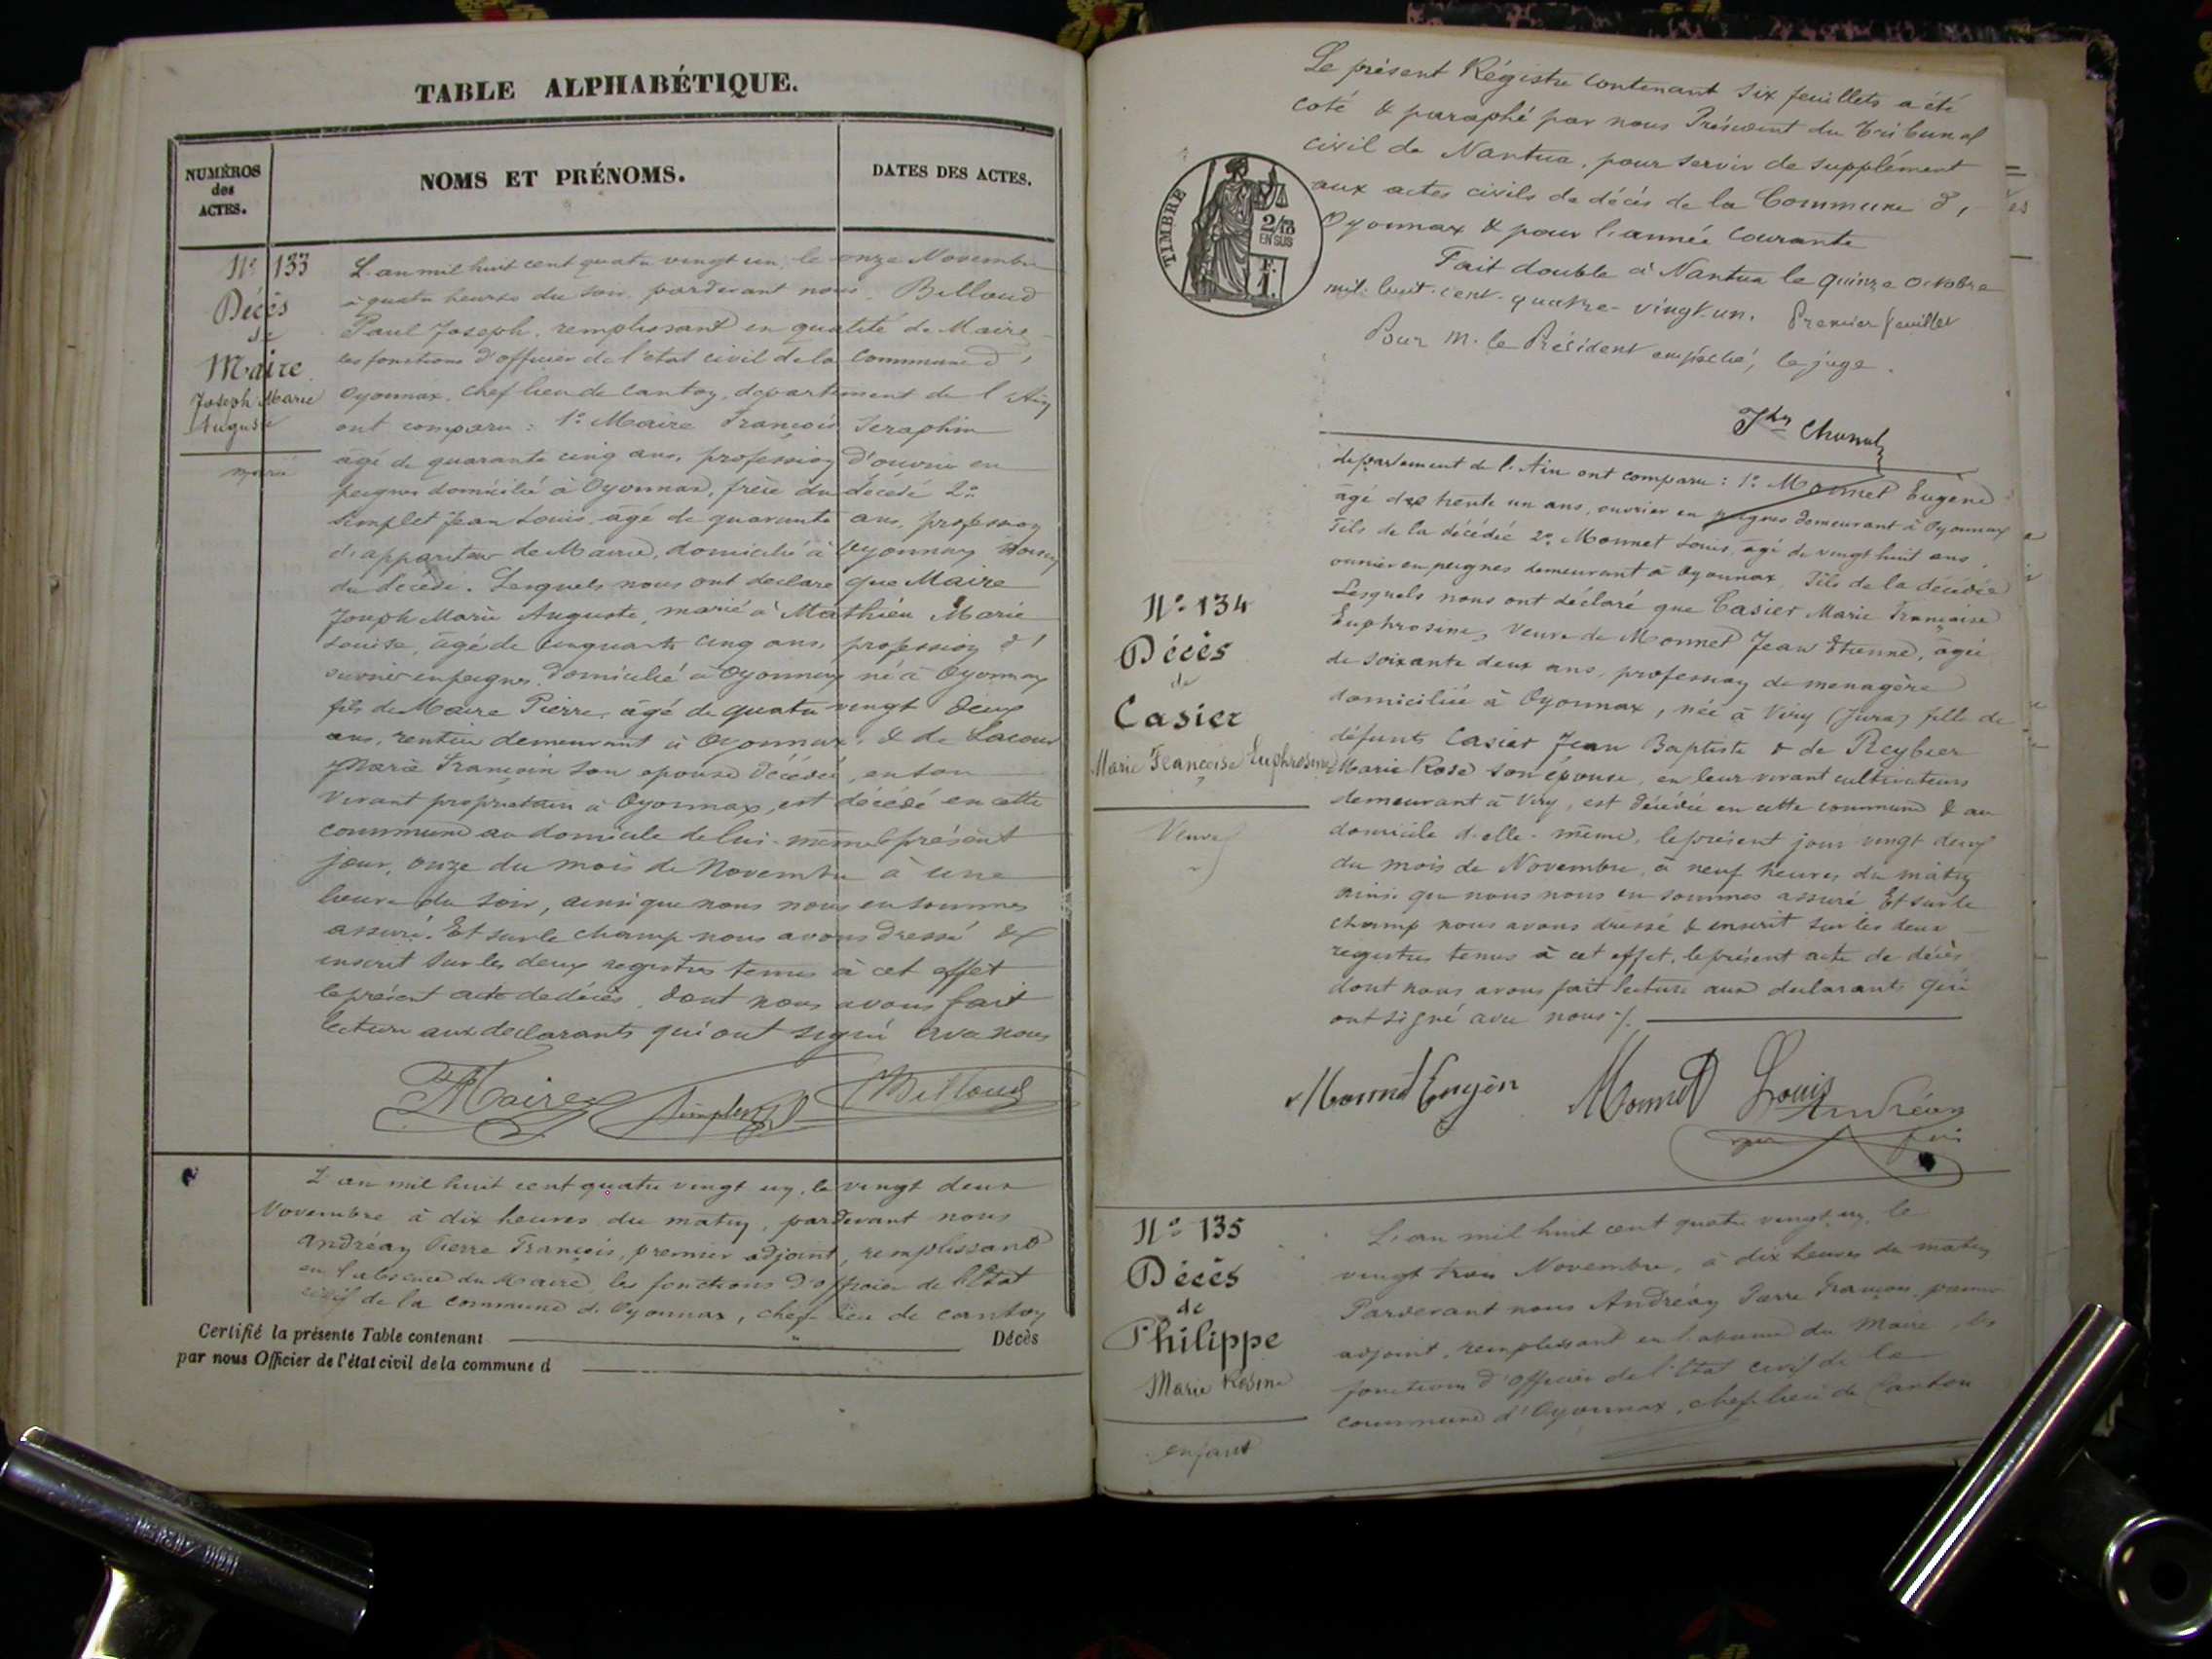 TABLE ALPHABÉTIQUE.
NUMÉROS
des
ACTES.
NOMS ET PRÉNOMS.
DATES DES ACTES.
N° 133
Décès
de
Maire
Joseph Marie
Auguste
marié
L'an mil huit cent quatre vingt un, le onze Novembre
à quatre heures du soir, pardevant nous, Billoud
Paul Joseph, remplissant en qualité de Maire
les fonctions d'officier de l'état civil de la commune d'
Oyonnax, chef lieu de canton, département de l'Ain
ont comparu : 1° Maire François Séraphin
âgé de quarante cinq ans, profession d'ouvrier en
peignes domicilié à Oyonnax, frère du décédé 2°
Simplet Jean Louis, âgé de quarante ans, profession
d'appariteur de Mairie, domicilié à Oyonnax
du décédé. Lesquels nous ont déclaré que Maire
Joseph Marie Auguste, marié à Mathieu Marie
Louise, âgé de cinquante cinq ans, profession d'
ouvrier en peignes, domicilié à Oyonnax né à Oyonnax
fils de Maire Pierre, âgé de quatre vingt deux
ans, rentier demeurant à Oyonnax, & de Lacour
Marie Françoise son épouse décédée, en son
vivant propriétaire à Oyonnax, est décédé en cette
commune au domicile de lui-même le présent
jour, onze du mois de Novembre à une
heure du soir, ainsi que nous nous en sommes
assuré. Et sur le champ nous avons dressé &
inscrit sur les deux registres tenus à cet effet
le présent acte de décès, dont nous avons fait
lecture aux déclarants qui ont signé avec nous
Maire Simplet Billoud
L'an mil huit cent quatre vingt un, le vingt deux
Novembre à dix heures du matin, pardevant nous
Andréan Pierre François, premier adjoint, remplissant
en l'absence du Maire, les fonctions d'officier de l'Etat
civil de la commune d'Oyonnax, chef-lieu de canton
Certifié la présente Table contenant Décès
par nous Officier de l'état civil de la commune d
Le présent Régistre contenant six feuillets a été
coté & paraphé par nous Président du Tribunal
civil de Nantua, pour servir de supplément
aux actes civils de décès de la Commune d'
Oyonnax & pour l'année courante
Fait double à Nantua le quinze octobre
mil-huit-cent-quatre-vingt-un. Premier feuillet
Pour M. le Président empêché, le juge.
TIMBRE
2/10
EN SUS
F.
1.
N° 134
Décès
de
Casier
Marie Françoise Euphrosine
Veuve
département de l'Ain ont comparu : 1° Monnet Eugène
âgé de trente un ans, ouvrier en peignes demeurant à Oyonnax
fils de la décédée 2° Monnet Louis, âgé de vingt huit ans,
ouvrier en peignes demeurant à Oyonnax, fils de la décédée
Lesquels nous ont déclaré que Casier Marie Françoise
Euphrosine, veuve de Monnet Jean Etienne, âgée
de soixante deux ans, profession de menagère
domiciliée à Oyonnax, née à Viry (Jura) fille de
défunts Casier Jean Baptiste & de Reybier
Marie Rose son épouse, en leur vivant cultivateurs
demeurant à Viry, est décédée en cette commune & au
domicile d'elle-même, le présent jour vingt deux
du mois de Novembre, à neuf heures du matin
ainsi que nous nous en sommes assuré Et sur le
champ nous avons dressé & inscrit sur les deux
registres tenus à cet effet, le présent acte de décès
dont nous avons fait lecture aux déclarants qui
ont signé avec nous
Monnet Eugèn Monnet Louis Andréan
N° 135
Décès
de
Philippe
Marie Rosine
enfant
L'an mil huit cent quatre vingt un, le
vingt trois Novembre, à dix heures du matin
Pardevant nous Andréan Pierre François, premier
adjoint, remplissant en l'absence du Maire, les
fonctions d'officier de l'Etat civil de la
commune d'Oyonnax, chef-lieu de Canton